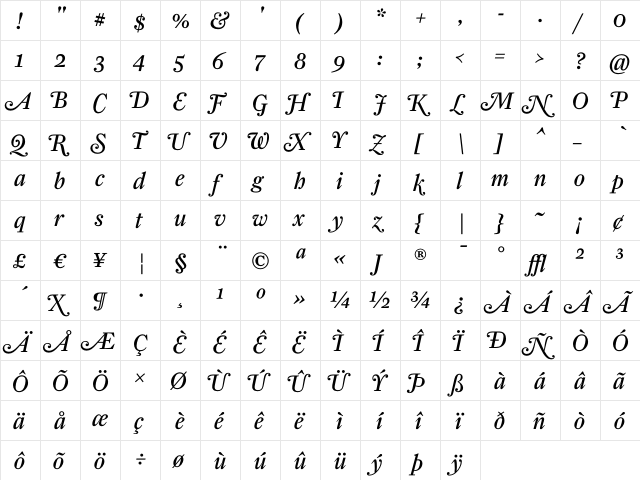 ! " # $ % & ' ( ) * + , - . / 0
1 2 3 4 5 6 7 8 9 : ; < = > ? @
A B C D E F G H I J K L M N O P
Q R S T U V W X Y Z [ \ ] ^ _ `
a b c d e f g h i j k l m n o p
q r s t u v w x y z { | } ~ ¡ ¢
£ € ¥ ¦ § ¨ © ª « J ® ¯ ° ffl ² ³
´ X ¶ · ¸ ¹ º » ¼ ½ ¾ ¿ À Á Â Ã
Ä Å Æ Ç È É Ê Ë Ì Í Î Ï Ð Ñ Ò Ó
Ô Õ Ö × Ø Ù Ú Û Ü Ý Þ ß à á â ã
ä å æ ç è é ê ë ì í î ï ð ñ ò ó
ô õ ö ÷ ø ù ú û ü ý þ ÿ